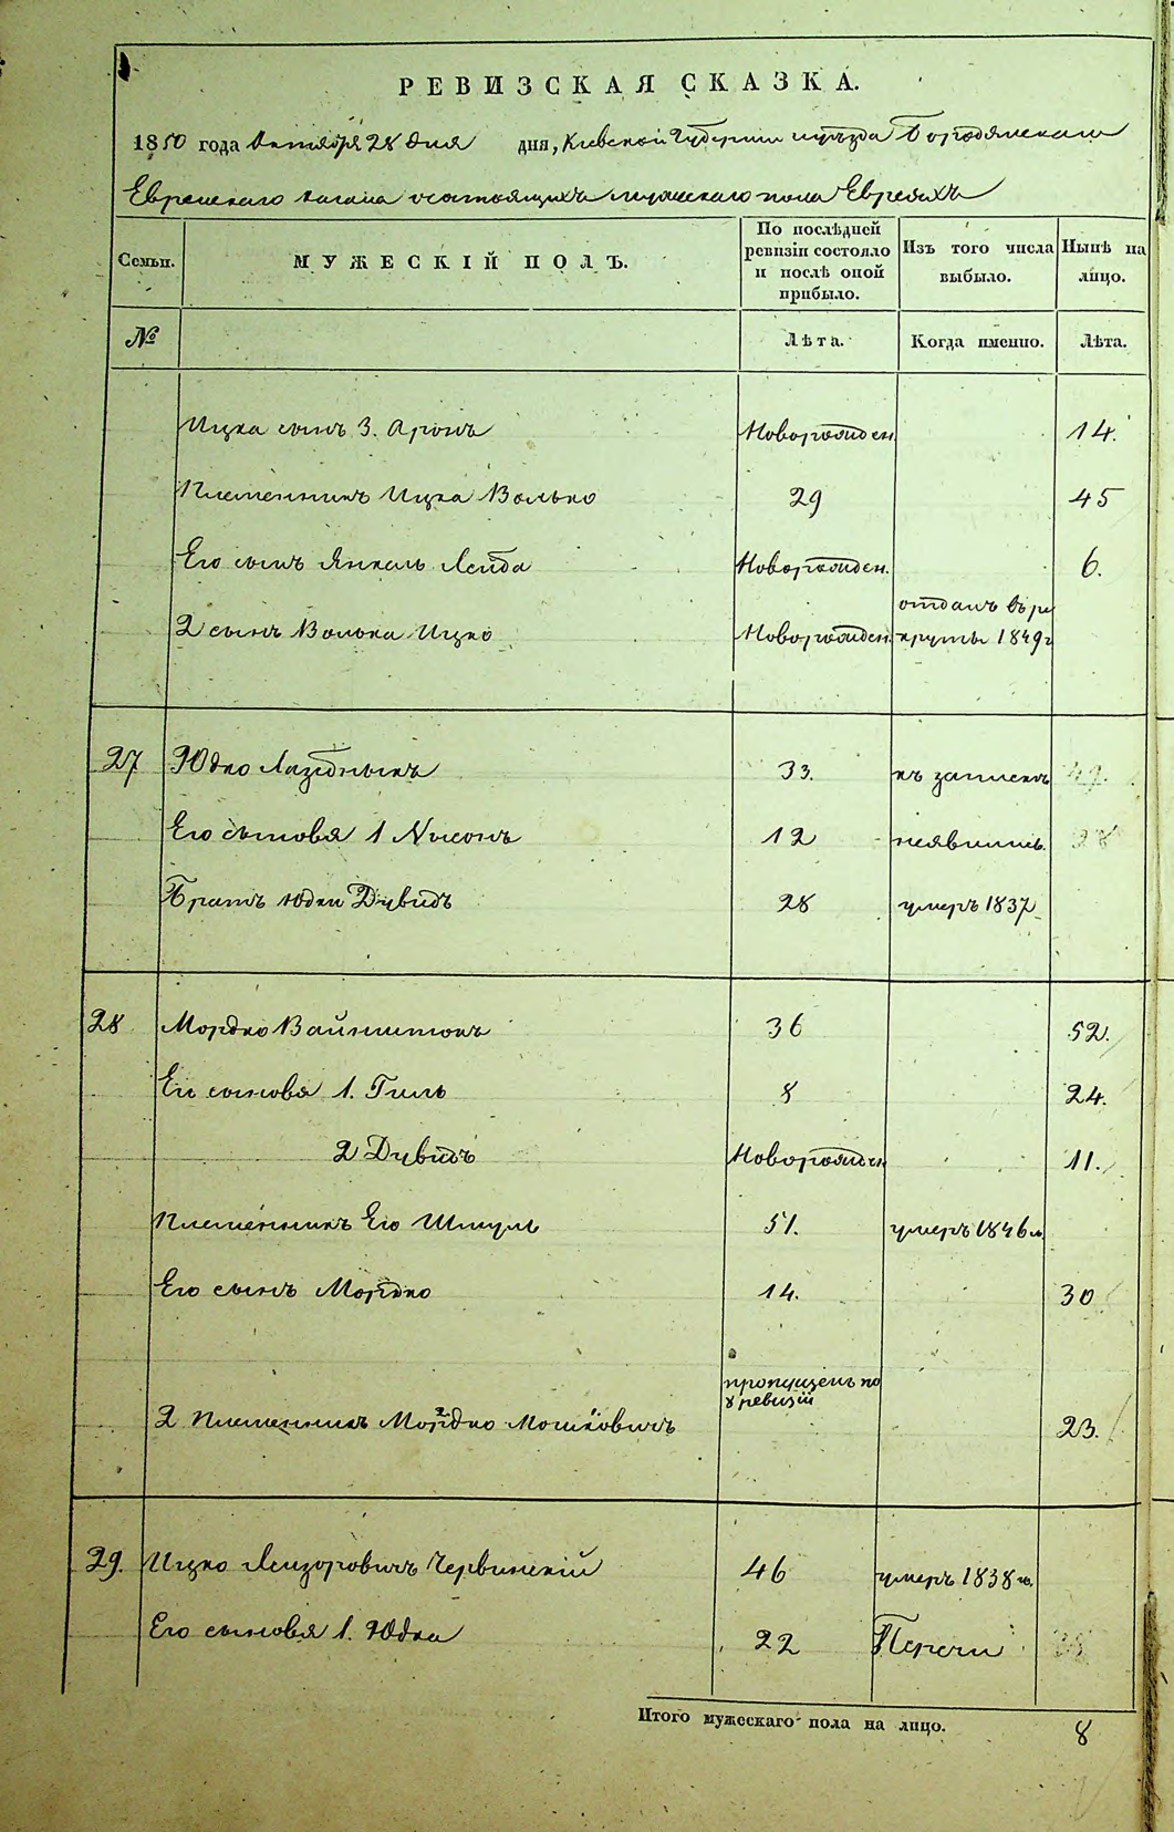 РЕВИЗСКАЯ СКАЗКА.
1850 года Октября 28 дня дня, Киевской Губернии уѣзда Бородянскаго
Еврейскаго кагала состоящихъ мужескаго пола Евреяхъ
Семьи. МУЖЕСКІЙ ПОЛЪ. По послѣдней ревизіи состояло и послѣ оной прибыло. Изъ того числа выбыло. Нынѣ на лицо.
№ Лѣта. Когда именно. Лѣта.
Ицка сынъ 3. Аронъ Новорожден 14.
Племенникъ Ицка Волько 29 45
Его сынъ Янкель Лейба Новорожден. 6.
2 сынъ Волька Ицко Новорожден отданъ въ ре
круты 1849г
27 Юдко къ запискѣ 49.
Его сыновя 1 Нисонъ 12 неявились. 28
Братъ Юдки Дувидъ 28 умеръ 1837
28 Мордко Вайншток 36 52.
Его сыновя 1. Гиль 8 24.
2 Дувидъ Новорожден 11.
Племенникъ Его Шмуль 51. умеръ 1846г.
Его сынъ Мордко 14. 30
пропущенъ по
8 ревизіи
2 Племенникъ Мордко Мошковичъ 23.
29. Ицко Лейзоровичъ Червинскій 46 умеръ 1838г.
Его сыновя 1. Юдка 22
Итого мужескаго пола на лицо. 8